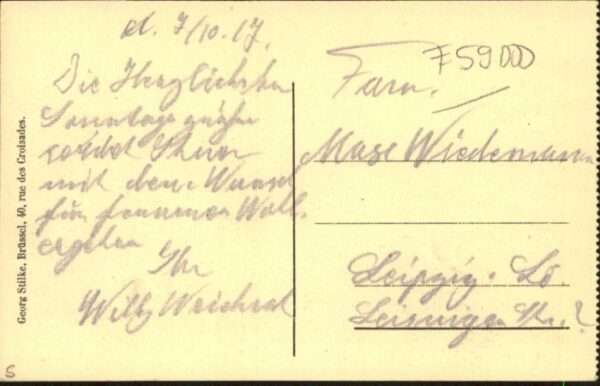 d. 7/10.17.
Die Herzlichsten
Sonntagsgrüße
sendet Ihnen
mit dem Wunsch
für ferneres Wohl
ergehen
Ihr
Willy
Georg Stilke, Brüssel, 40, rue des Croisades.
F59000
Fam.
Wiedemann
Leipzig
S